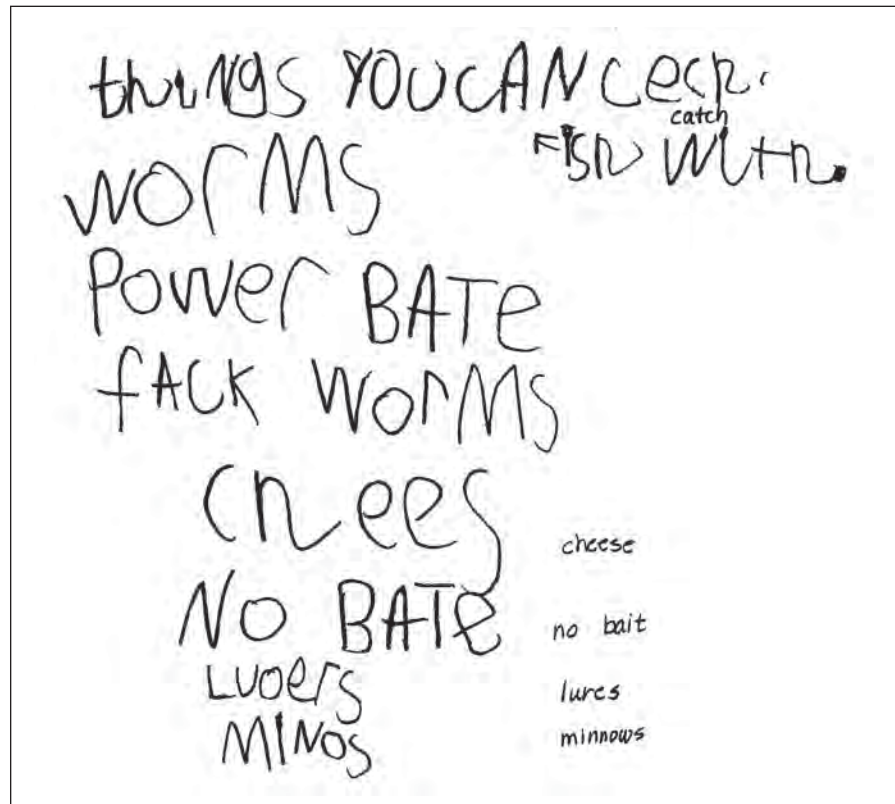 things YOU CAN cech
catch
Fish with.
worMs
Power BATe
fACK worMs
chees
cheese
NO BATe
no bait
Luoers
lures
MiNos
minnows